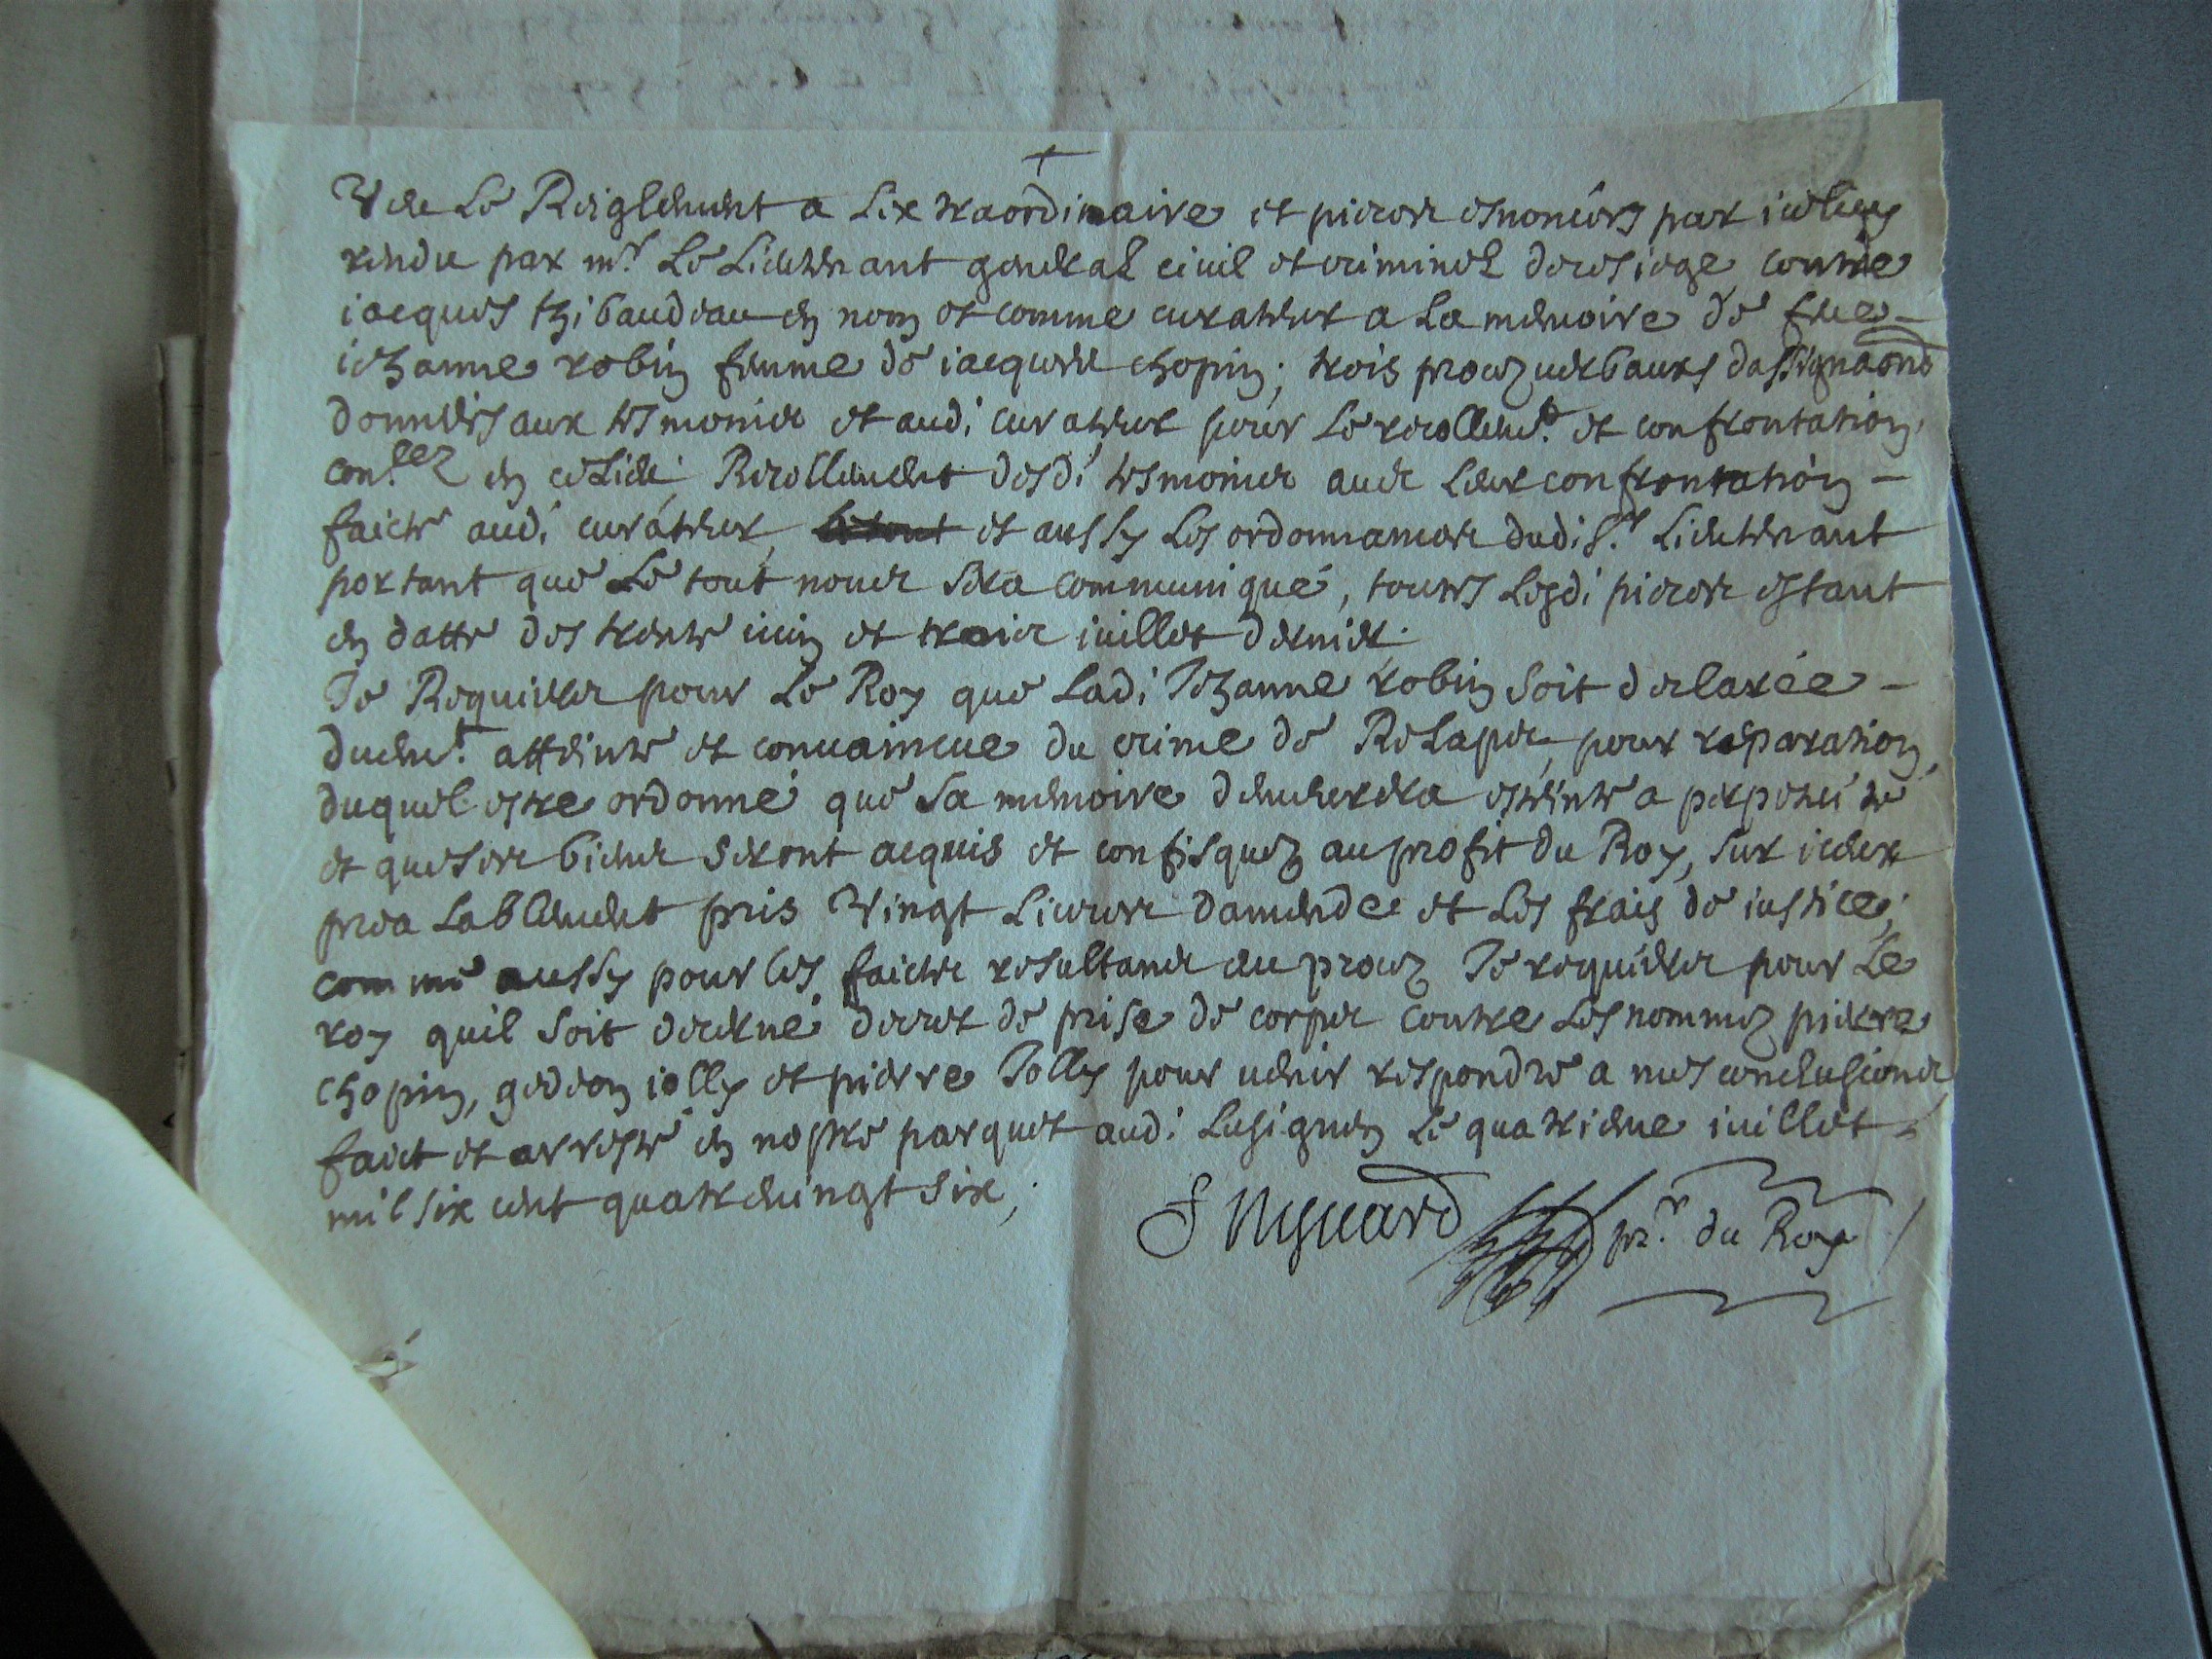 +
Veu Le Reiglement a Lextraordinaire et pieces esnoncées par iceluy
rendu par mr. Le Lieutenant general ciuil et criminel de ce siege contre
iacques thibaudeau en nom et comme curateur a La memoire de feue
iehanne robin femme de iacques chopin; trois procez uerbaux dassignaons
donnees aux tesmoins et audi curateur pour Le recollemt. et confrontation,
conllez en ce Lieu; Recollement desdi tesmoins auec Leur confrontation
faicte audi curateur, et aussy Les ordonnances dudi sr. Lieutenant
portant que Le tout nous sera communiqué, toutes Lesdi pieces estant
en datte des trente iuin et trois iuillet dernier.
Je Requiers pour Le Roy que Ladi Jehanne robin soit declarée
duemt. atteinte et conuaincue du crime de Relaps, pour reparation,
duquel estre ordonné que sa memoire demeurera esteinte a perpetuité
et que ses biens seront acquis et confisquez au profit du Roy, sur iceux
prealablement pris Vingt Liures damende et Les frais de iustice;
comme aussy pour les faictz resultans du procez Je requiers pour Le
roy quil soit decerné decret de prise de corps contre Les nommez pierre
chopin, gedeon iolly et pierre Jolly pour uenir respondre a mes conclusions
faict et arresté en nostre parquet audi Lusignen Le quatrieme iuillet
mil six cent quatreuingt six;
pr. du Roy